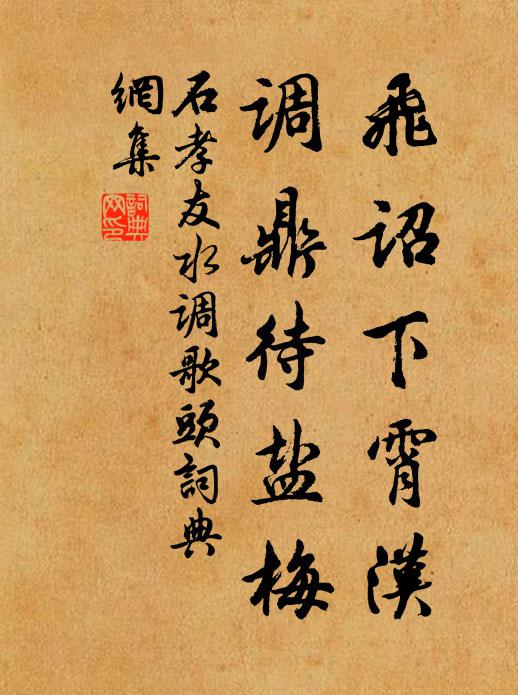 飛詔下霄漢
调鼎待盐梅
石孝友水调歌頭詞典
網集
詞典
网印